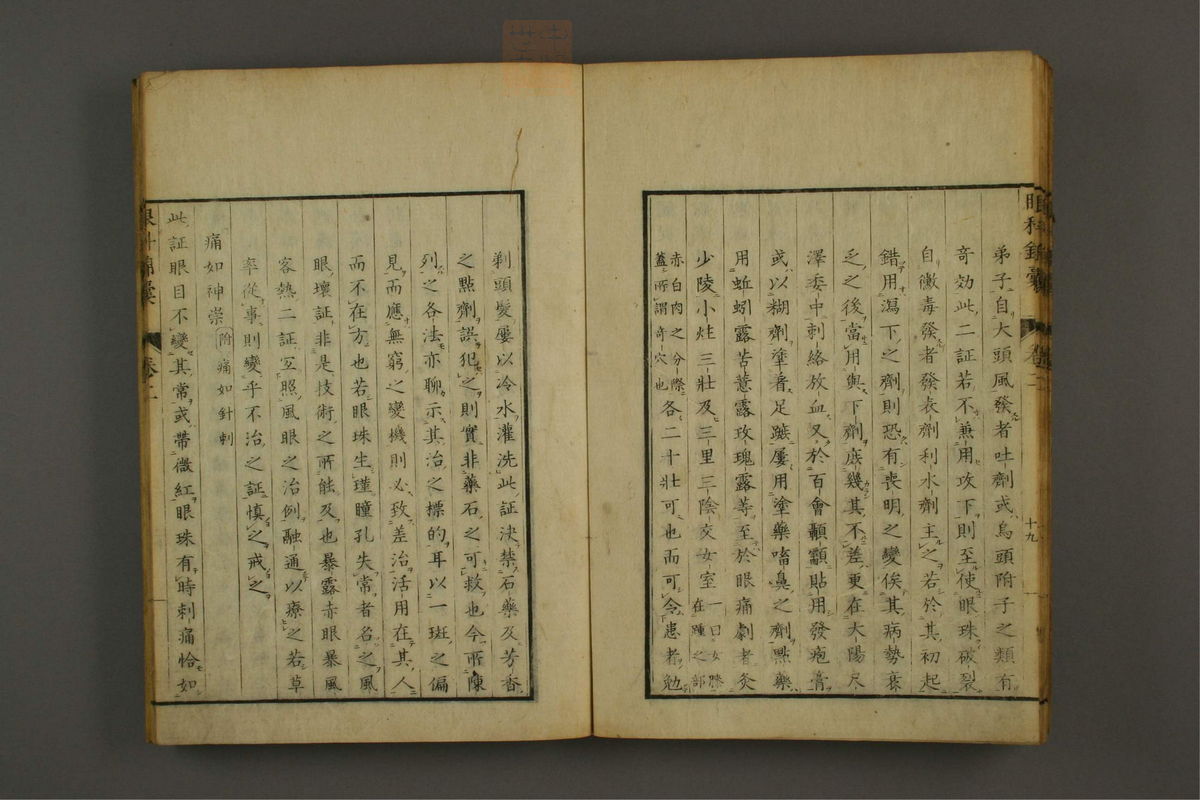 眼科錦囊 卷二 十九
弟子自大頭風發者吐劑或烏頭附子之類有
奇効此二証若不兼用攻下則至使眼珠破裂
自黴毒發者發表劑利水劑主之若於其初起
錯用瀉下之劑則恐有喪明之變俟其病勢衰
乏之後當用輿下劑庶幾其不差更在大陽尺
澤委中刺絡放血又於百會顳顬貼用發疱膏
或以糊劑塗着足蹠屢用塗藥嗜鼻之劑點藥
用蚯蚓露苦薏露玫瑰露等至於眼痛劇者灸
少陵小炷三壯及三里三陰交女室一曰女膝在踵之部
赤白肉之分際蓋所謂奇穴也各二十壯可也而可令患者勉
剃頭髮屢以冷水灌洗此証決禁石藥及芳香
之點劑誤犯之則實非藥石之可救也今所陳
列之各法亦聊示其治之標的耳以一斑之偏
見而應無窮之變機則必致差治活用在其人
而不在方也若眼珠生瑾瞳孔失常者名之風
眼壞証非是技術之所能及也暴露赤眼暴風
客熱二証互照風眼之治例融通以療之若草
率從事則變乎不治之証慎之戒之
痛如神祟 附痛如針刺
此証眼目不變其常或帶微紅眼珠有時刺痛恰如
眼科錦囊 卷二